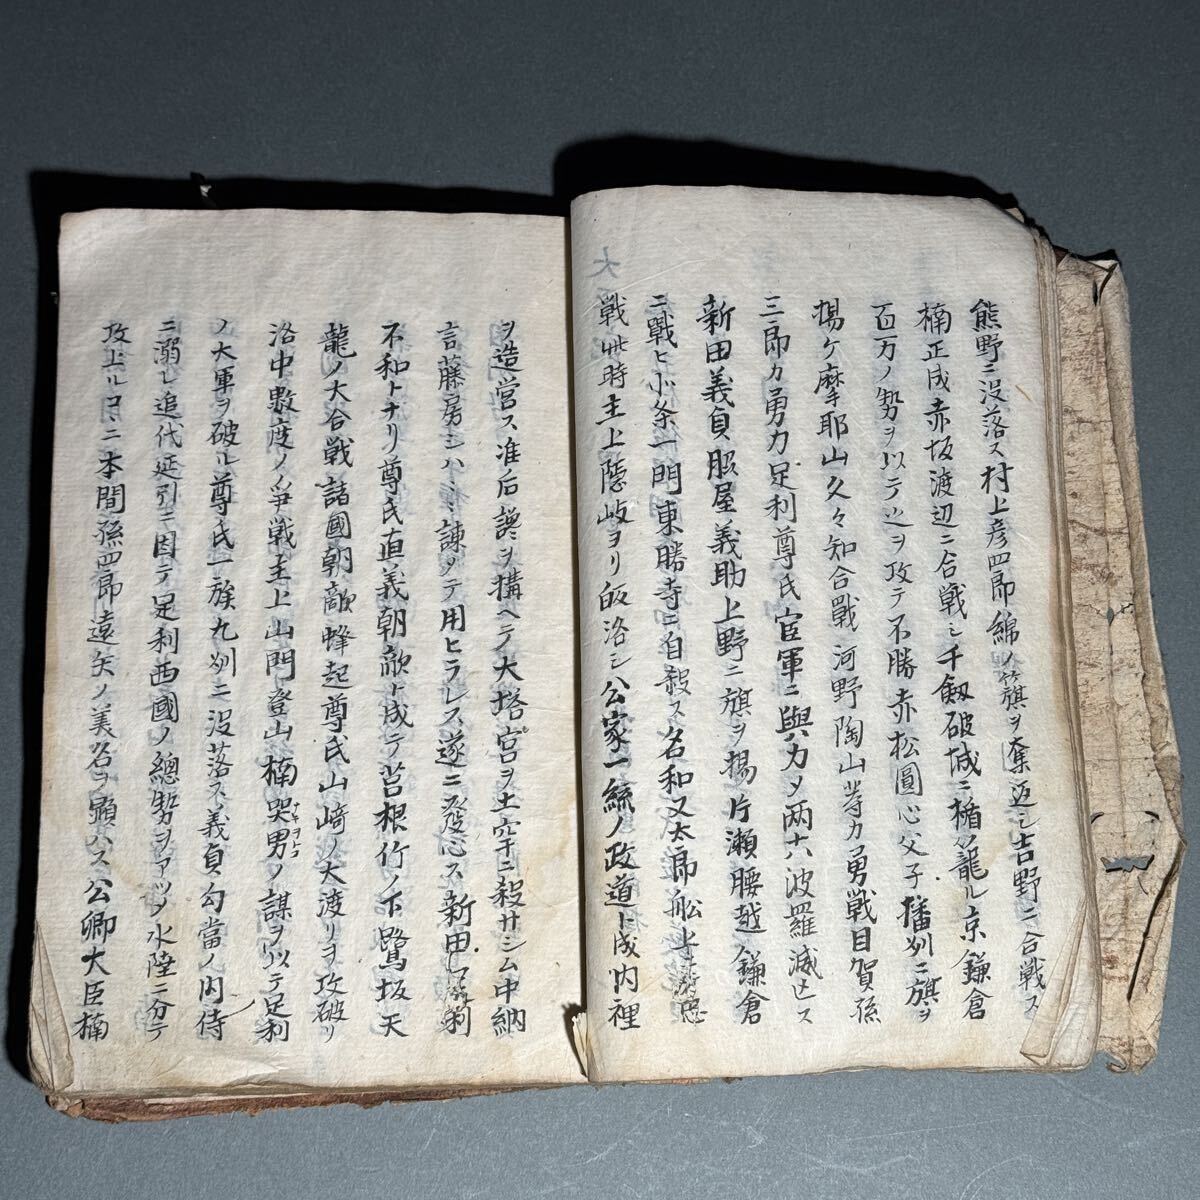 熊野ニ没落ス村上彦四郎綿ノ簱ヲ奪返シ吉野ニ合戦ス
楠正成赤坂渡辺ニ合戦シ千劔破城ニ楯籠ル京鎌倉
百万ノ勢ヲ以テ之ヲ攻テ不勝赤松圓心父子播州ニ旗ヲ
揚ケ摩耶山久々知合戰河野陶山等カ勇戦目賀孫
三郎カ勇力足利尊氏官軍ニ與力メ両六波羅滅亡ス
新田義貞脇屋義助上野ニ旗ヲ揚片瀬腰越鎌倉
ニ戰ヒ北条一門東勝寺ニ自殺ス名和又太郎舩上
戦此時主上隠岐ヨリ皈洛シ公家一統ノ政道ト成内裡
ヲ造営ス准后讒ヲ搆ヘテ大塔宮ヲ土穽ニ殺サシム中納
言藤房シハ〻諌メテ用ヒラレス遂ニ發心ス新田
不和トナリ尊氏直義朝敵ト成テ筥根竹ノ下鷺坂天
龍ノ大合戦諸國朝敵蜂起尊氏山崎ノ大渡リヲ攻破リ
洛中数度ノ爭戦主上山門登山楠哭男ナキヲトコノ謀ヲ以テ足利
ノ大軍ヲ破ル尊氏一族九州ニ没落ス義貞勾當ノ内侍
ニ溺レ追伐延引ニ因テ足利西國ノ總勢ヲアツメ水陸ニ分テ
攻上ルコヽニ本間孫四郎遠矢ノ美名ヲ顕ハス公卿大臣楠